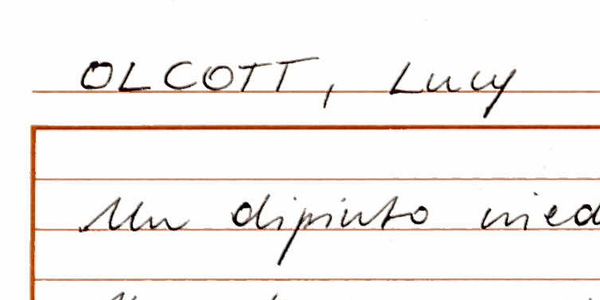 OLCOTT, Lucy
Un dipinto ined